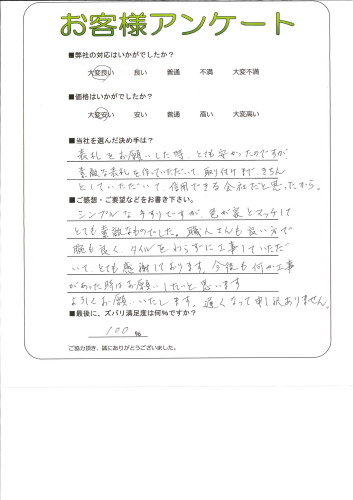 お客様アンケート
■弊社の対応はいかがでしたか?
大変良い 良い 普通 不満 大変不満
■価格はいかがでしたか?
大変安い 安い 普通 高い 大変高い
■当社を選んだ決め手は?
表札をお願いした時、とても安かったのですが
素敵な表札を作っていただいて、取り付けまできちん
としていただいて、信用できる会社だと思ったから。
■ご感想・ご要望などをお書き下さい。
シンプルな手すりですが、色が家とマッチして
とても素敵なものでした。職人さんも良い方で
腕も良く、タイルをわらずに工事していただ
いて、とても感謝しております。今後も何か工事
があった時はお願いしたいと思います
よろしくお願いいたします。遅くなって申し訳ありません。
■最後に、ズバリ満足度は何%ですか?
100 %
ご協力頂き、誠にありがとうございました。